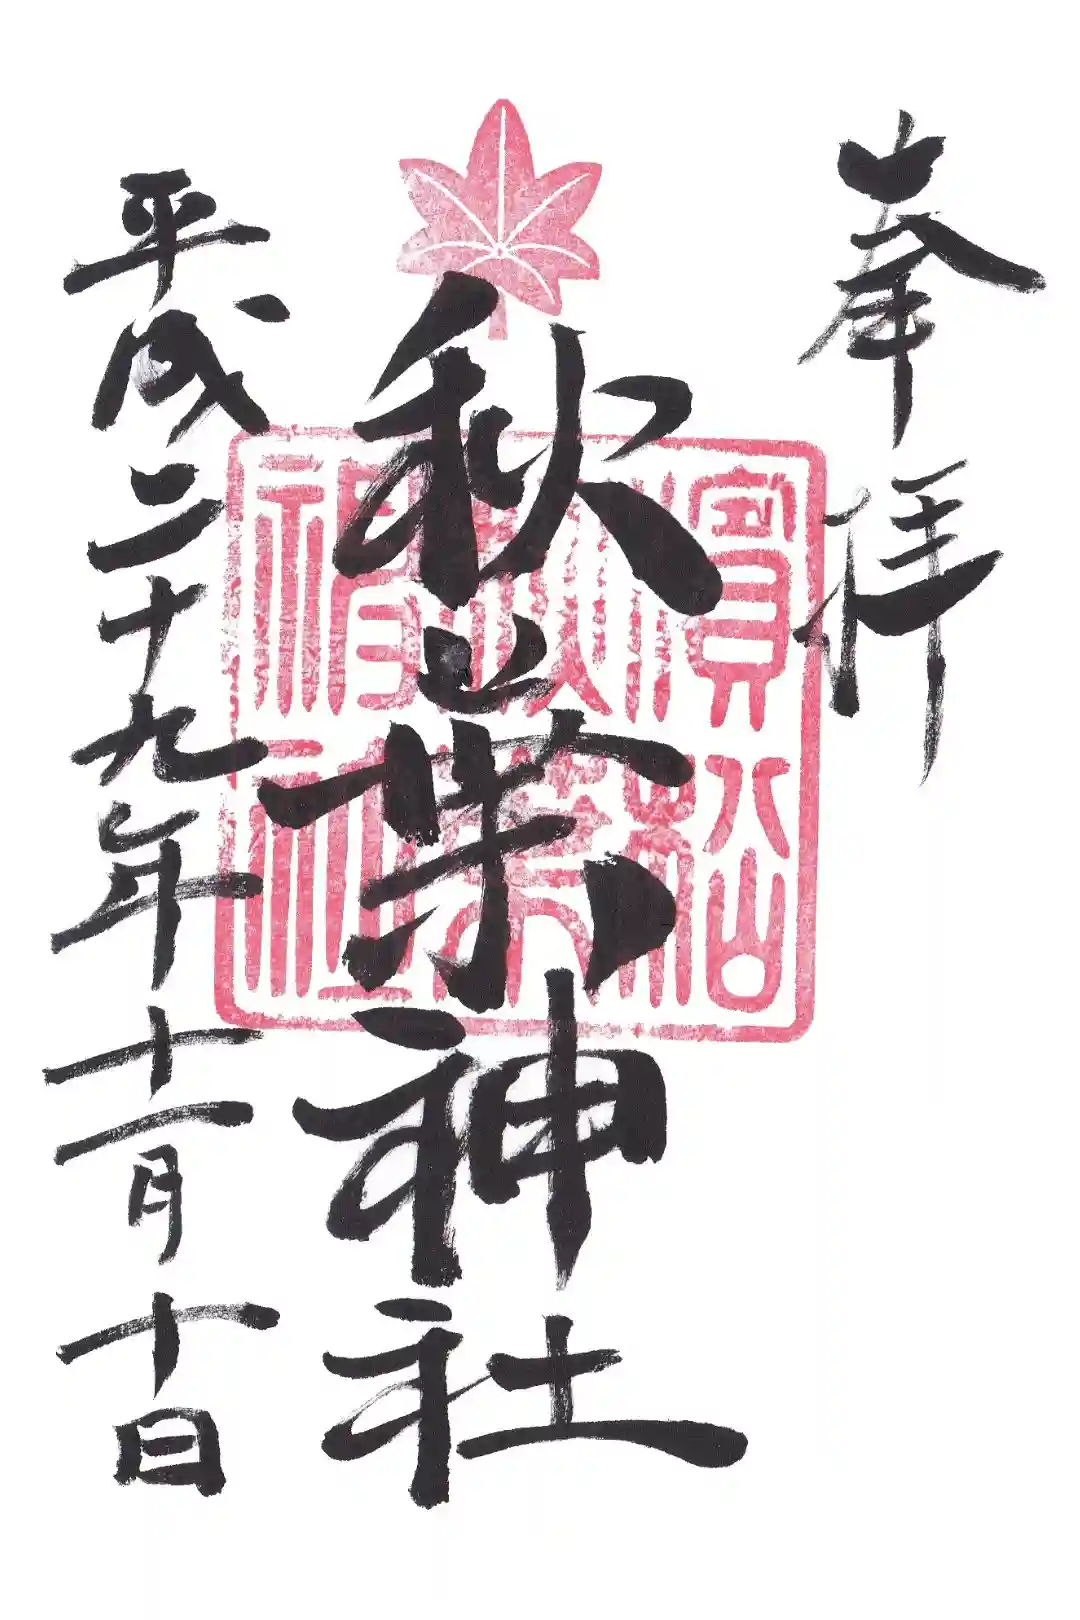 奉拝
秋葉神社
濱松
秋葉
神社
平成二十九年十一月十日